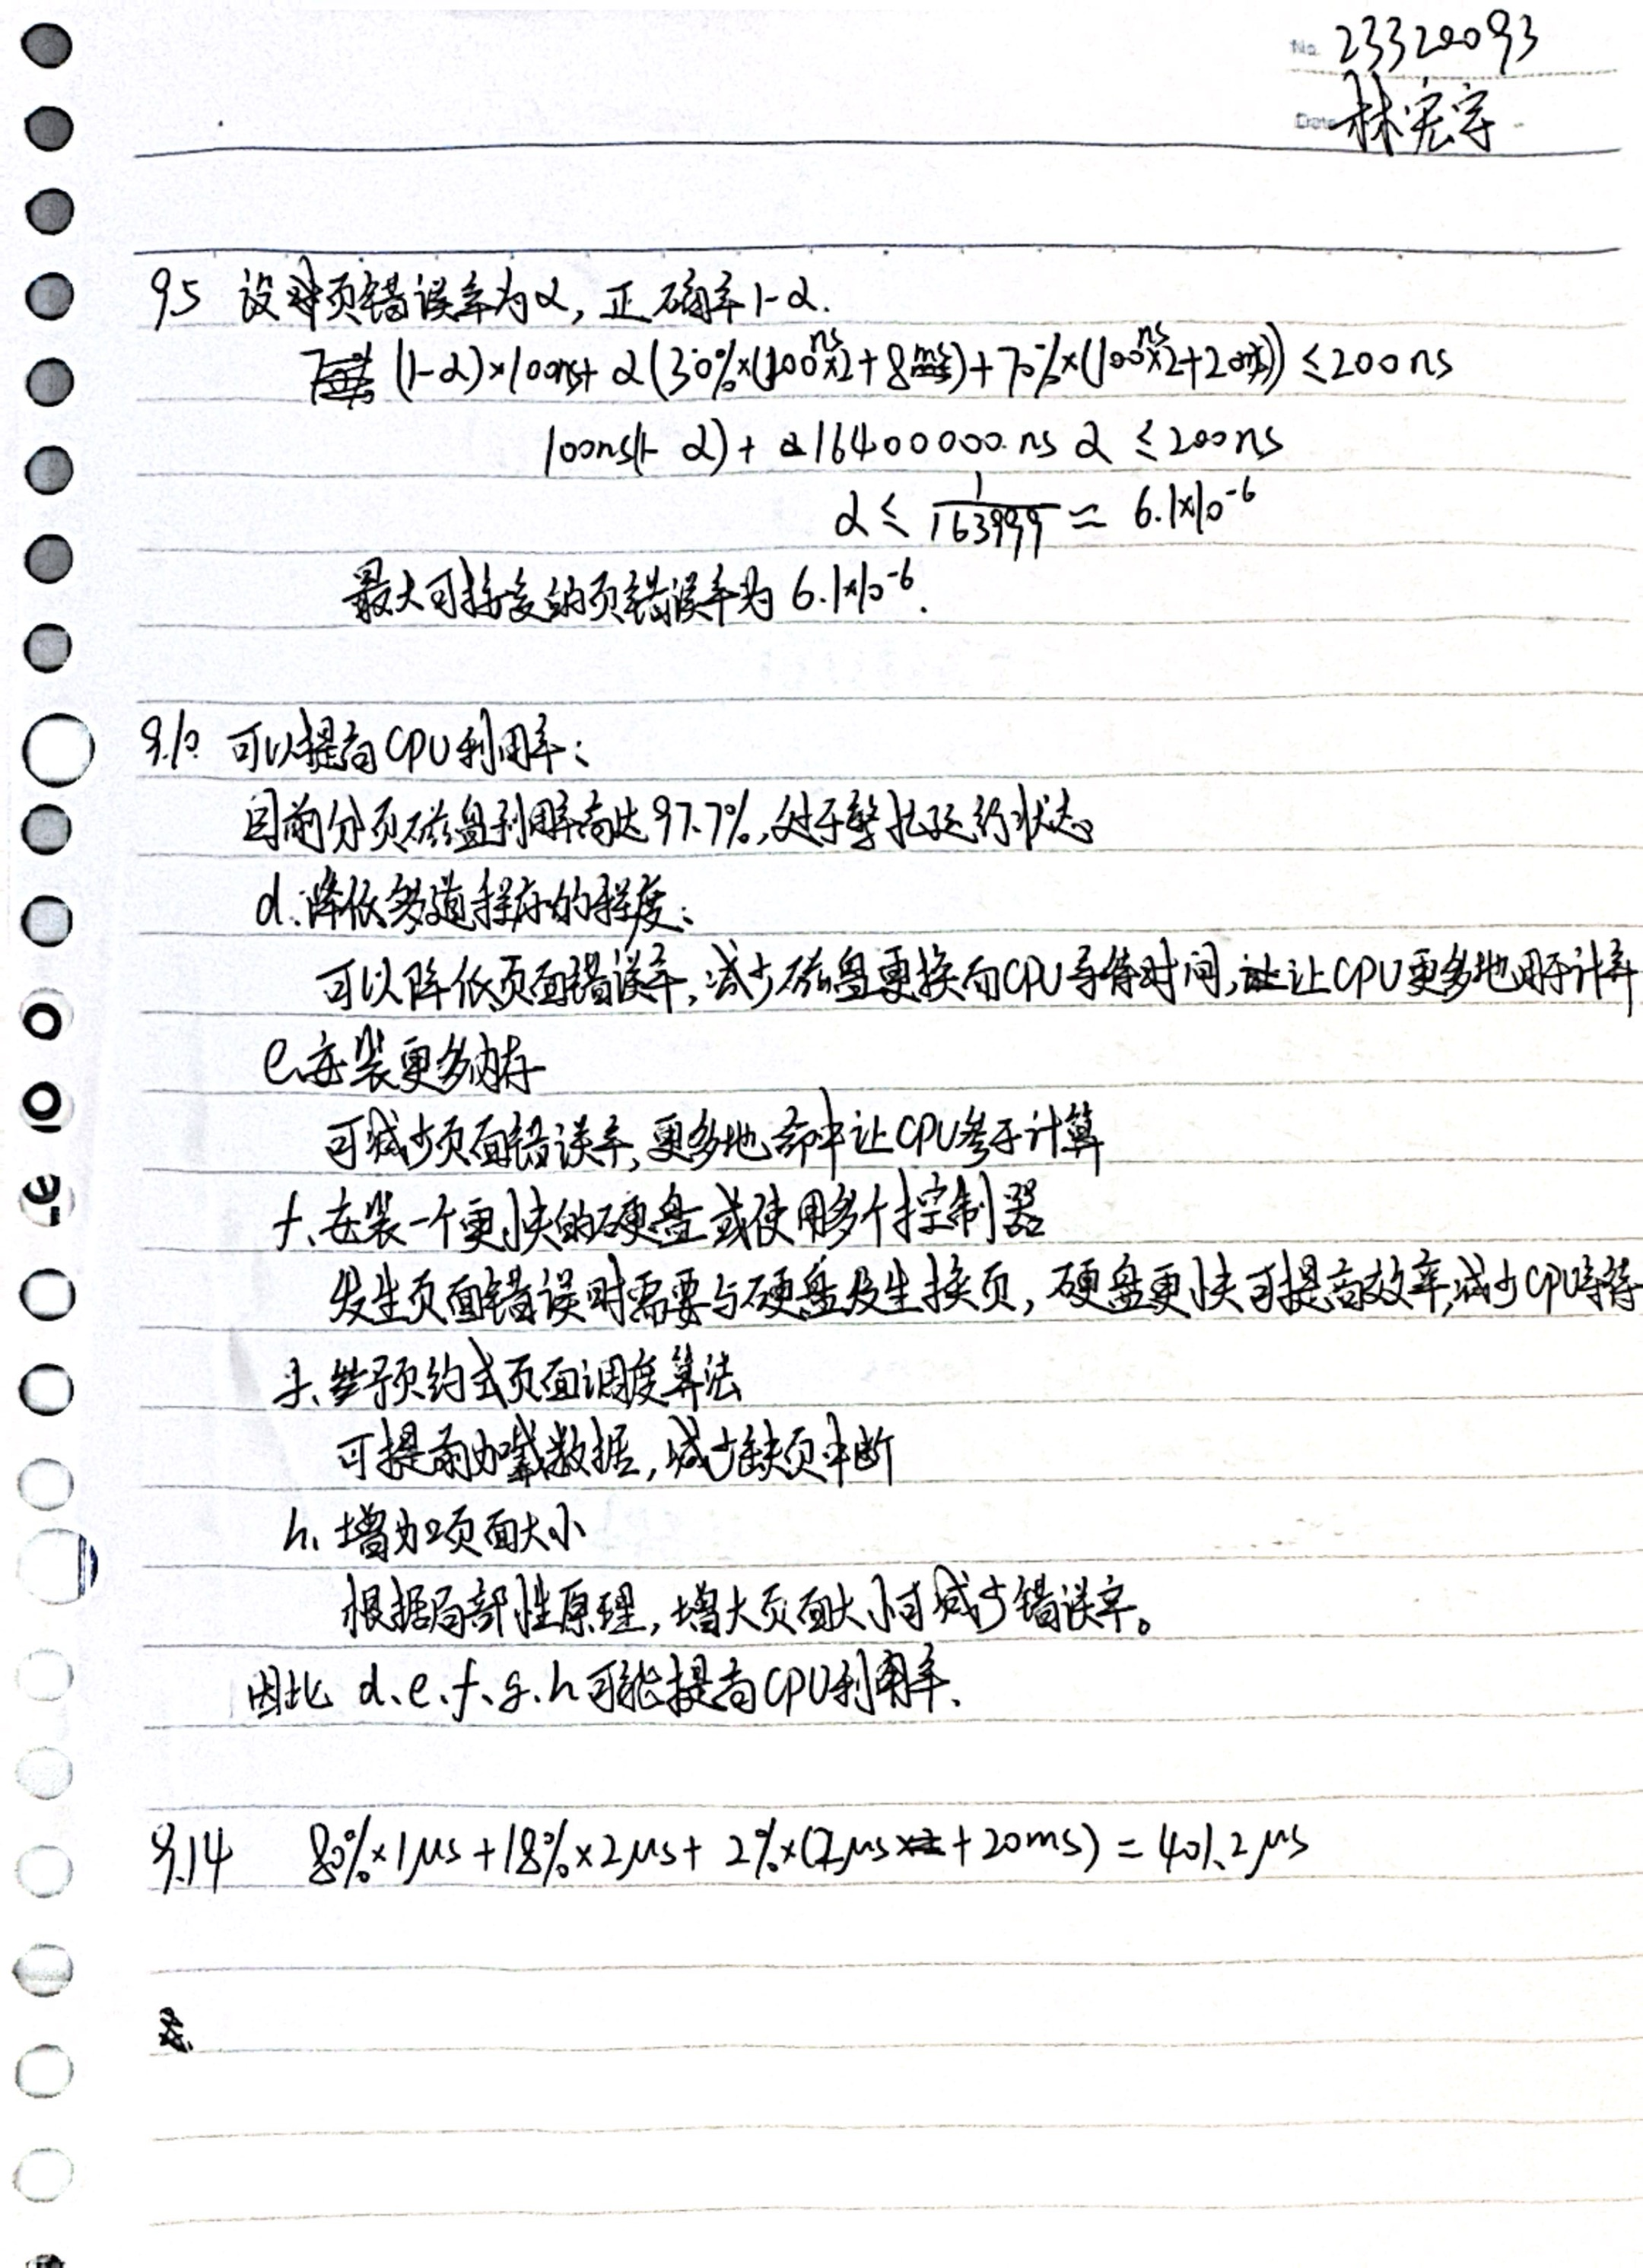 No. 23320093
Date 林宏宇
9.5 设页错误率为α, 正确率1-α.
(1-α)×100ns+ α(30%×(100ns×2+8ms)+70%×(100ns×2+20ms)) ≤200ns
100ns(1-α)+ 16400000ns α ≤200ns
α ≤ 1/163999 ≈ 6.1×10⁻⁶
最大可接受的页错误率为 6.1×10⁻⁶.
9.10 可以提高CPU利用率:
目前分页磁盘利用率高达97.7%,处于挣扎运行状态
d.降低多道程序的程度:
可以降低页面错误率,减少磁盘更换而CPU等待时间,让CPU更多地用于计算
e.安装更多内存
可减少页面错误率,更多地命中让CPU参于计算
f.安装一个更快的硬盘或使用多个控制器
发生页面错误时需要与硬盘发生换页,硬盘更快可提高效率,减少CPU等待
g.预约式页面调度算法
可提前加载数据,减少缺页中断
h.增加页面大小
根据局部性原理,增大页面大小可减少错误率。
因此 d、e、f、g、h可能提高CPU利用率.
9.14 80%×1μs+18%×2μs+ 2%×(2μs+20ms)=401.2μs